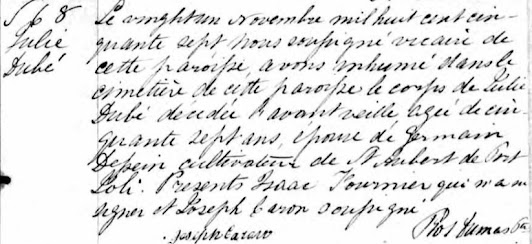 S. 68
Julie
Dubé
Le vingt un Novembre mil huit cent cin-
quante sept nous soussigné vicaire de
cette paroisse, avons inhumé dans le
cimetière de cette paroisse le corps de Julie
Dubé décedée l'avant veille, agée de cin-
quante sept ans, épouse de Germain
cultivateur de St Aubert de Port
Joli. Presents Isaac Fournier qui n'a su
signer et Joseph Caron soussigné
Joseph Caron
Dumas Ptr